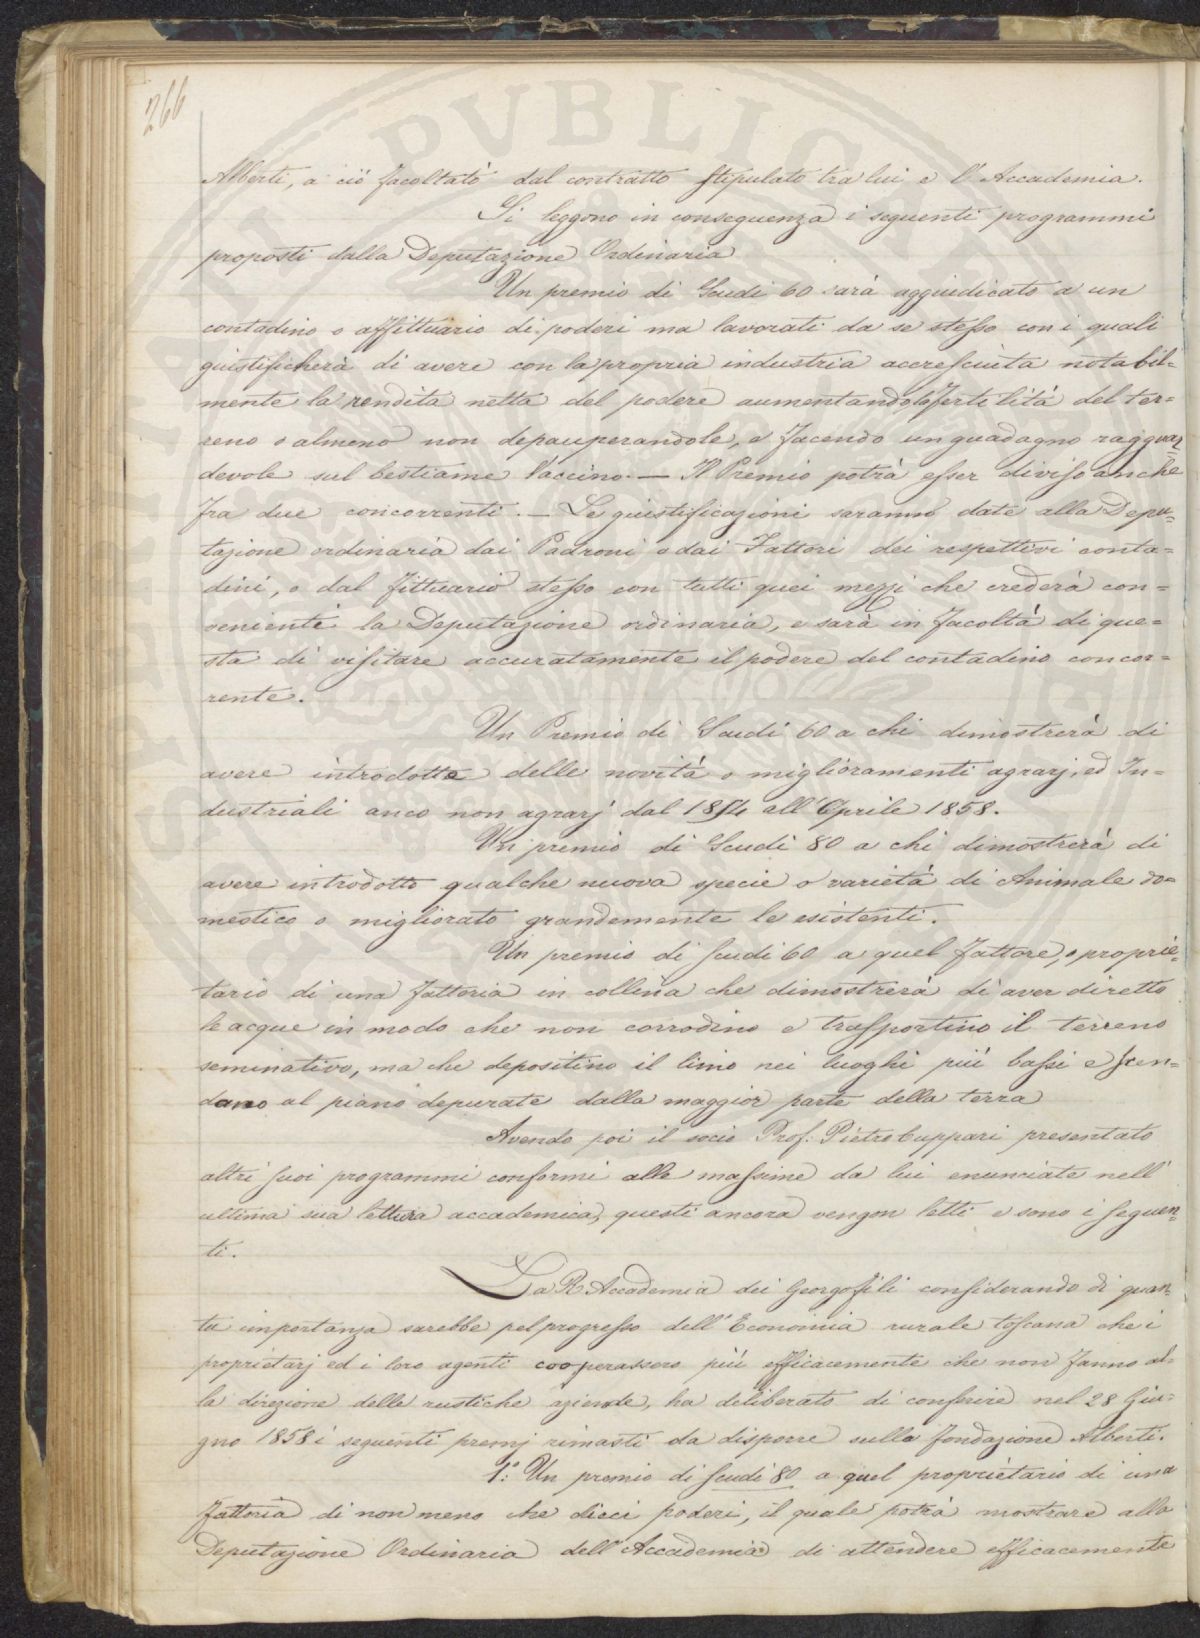 266
PVBLIC
Alberti, a ciò facoltato dal contratto stipulato tra lui e l'Accademia.
Si leggono in conseguenza i seguenti programmi
proposti dalla Deputazione Ordinaria
Un premio di Scudi 60 sarà aggiudicato a un
contadino o affittuario di poderi ma lavorati da se stesso con i quali
giustificherà di avere con la propria industria accresciuta notabil=
mente la rendita netta del podere aumentando la fertilità del ter=
reno o almeno non depauperandole, e facendo un guadagnoragguar=
devole sul bestiame Vaccino. — Il Premio potrà esser diviso anche
fra due concorrenti. — Le giustificazioni saranno date alla Depu=
tazione ordinaria dai Padroni o dai Fattori dei respettivi conta=
dini, o dal fittuario stesso con tutti quei mezzi che crederà con=
veniente la Deputazione ordinaria, e sarà in facoltà di que=
sta di visitare accuratamente il podere del contadino concor=
rente.
Un Premio di Scudi 60 a chi dimostrerà di
avere introdotte delle novità o miglioramenti agrarj, ed In=
dustriali anco non agrarj dal 1854 all'Aprile 1858.
Un premio di Scudi 80 a chi dimostrerà di
avere introdotto qualche nuova specie o varietà di Animale do=
mestico o migliorato grandemente le esistenti.
Un premio di Scudi 60 a quel Fattore, o proprie=
tario di una fattoria in collina che dimostrerà di aver diretto
le acque in modo che non corrodino e trasportino il terreno
seminativo, ma che depositino il limo nei luoghi più bassi e scen=
dano al piano depurate dalla maggior parte della terra
Avendo poi il socio Prof. Pietro Cuppari presentato
altri suoi programmi conformi alle massime da lui enunciate nell'
ultima sua lettura accademica, questi ancora vengon letti e sono i seguen=
ti.
La R. Accademia dei Georgofili considerando di quan=
ta importanza sarebbe pel progresso dell'Economia rurale toscana che i
proprietarj ed i loro agenti cooperassero più efficacemente che non fanno al=
la direzione delle rustiche aziende, ha deliberato di conferire nel 28 Giu=
gno 1858 i seguenti premj rimasti da disporre sulla fondazione Alberti.
1.° Un premio di Scudi 80 a quel proprietario di una
fattoria di non meno che dieci poderi, il quale potrà mostrare alla
Deputazione Ordinaria dell'Accademia di attendere efficacemente